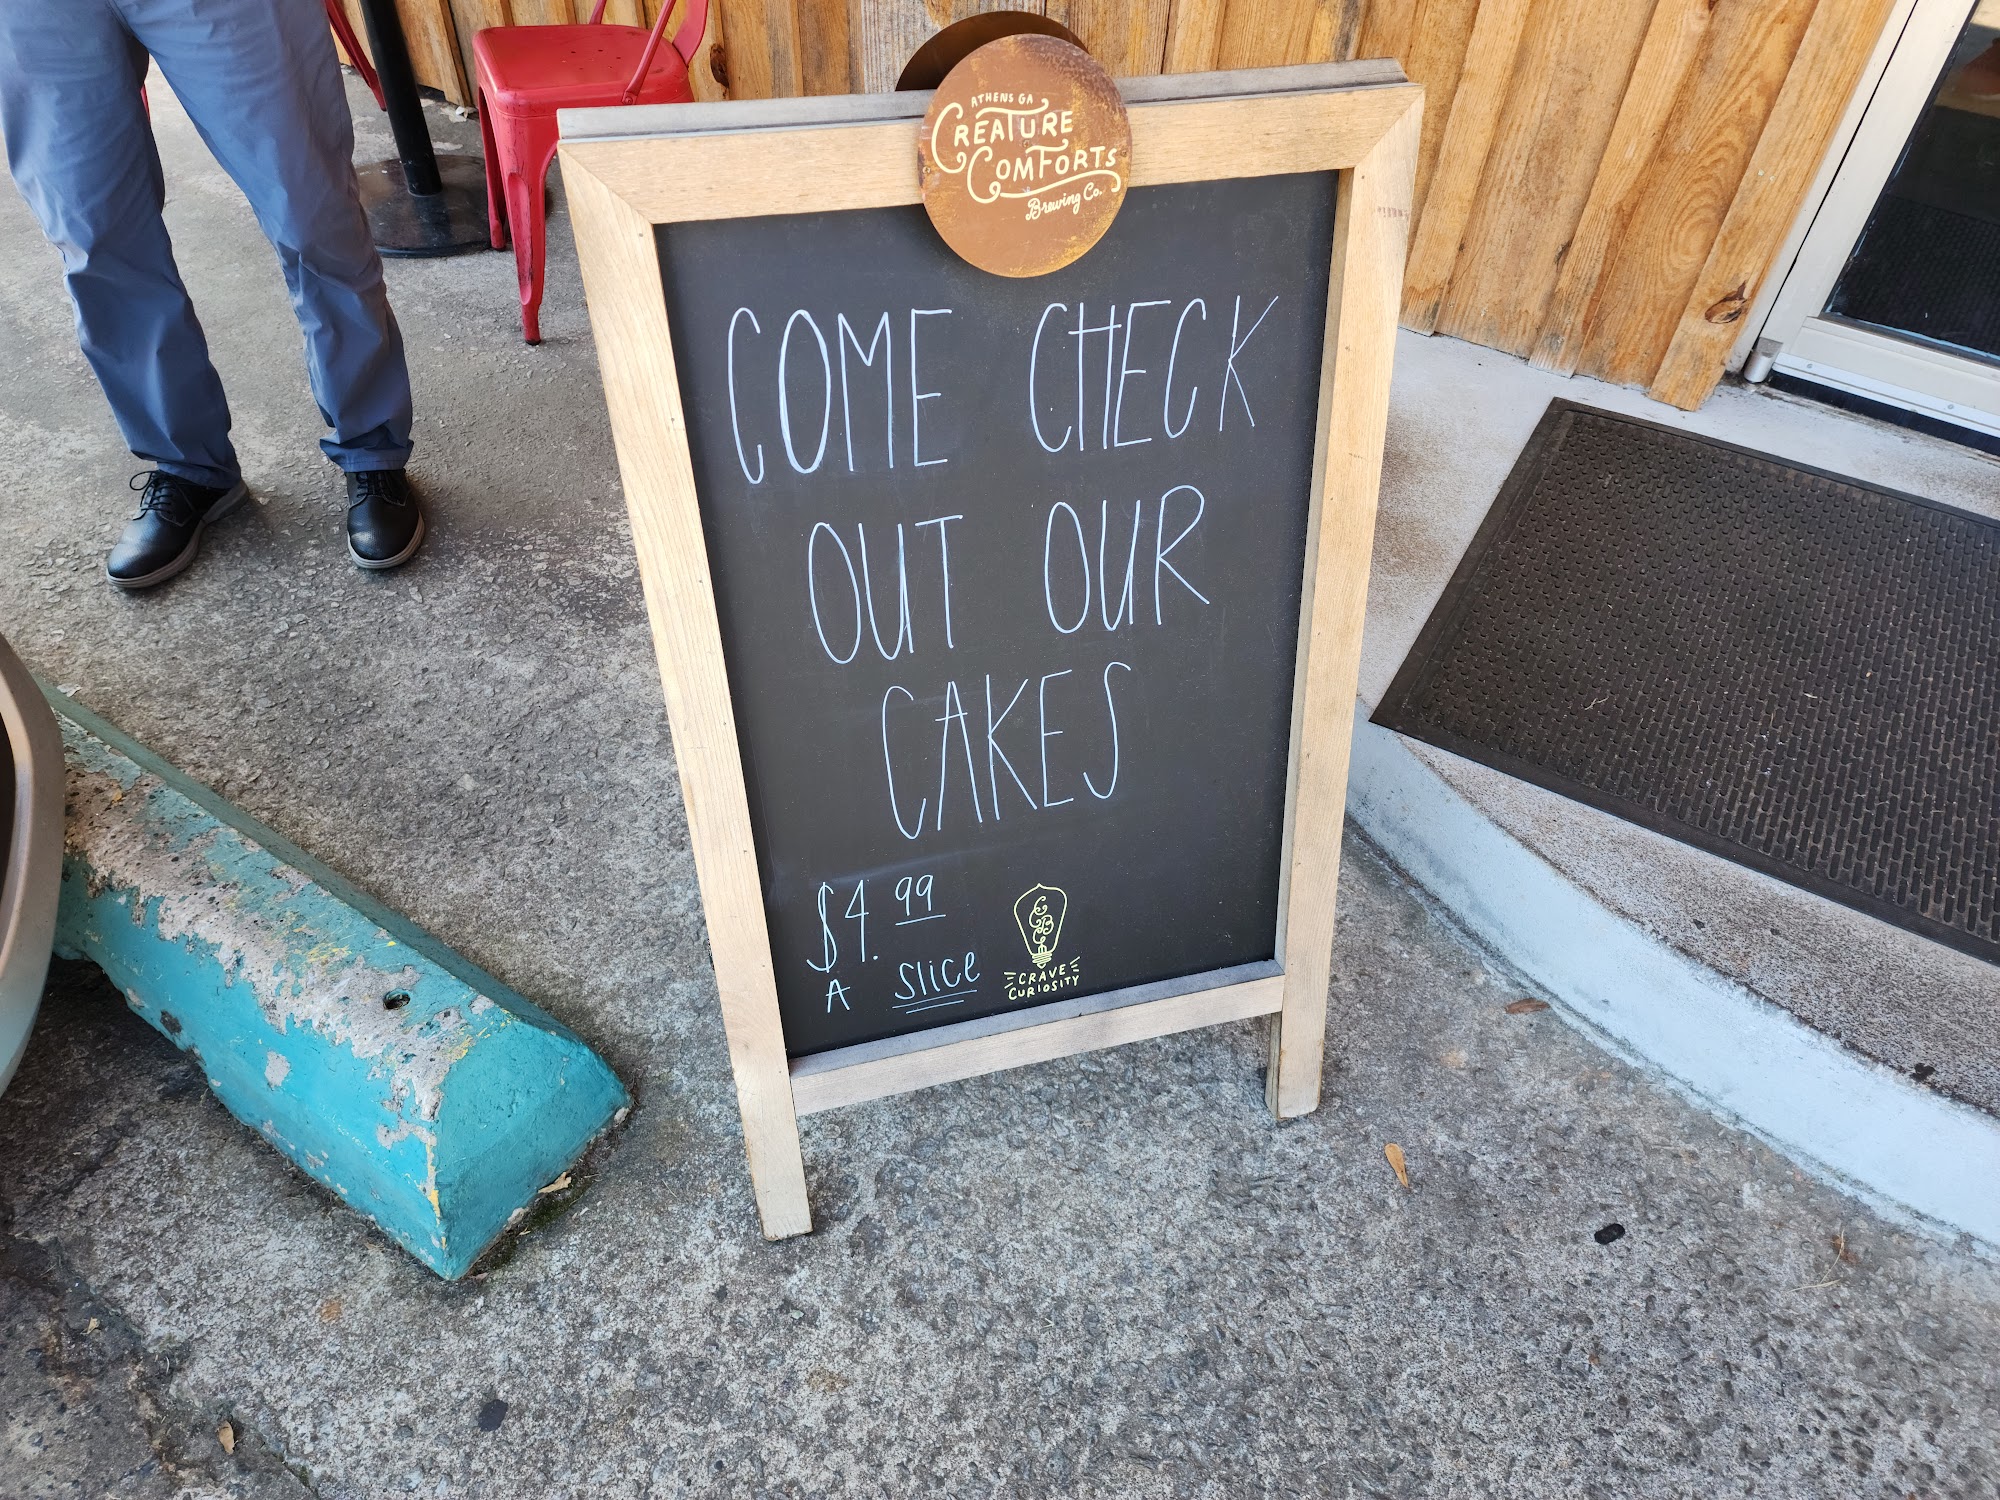 ATHENS GA
CREATURE
COMFORTS
Brewing Co.
COME CHECK
OUT OUR
CAKES
$4.99
A slice
CCBC
CRAVE
CURIOSITY